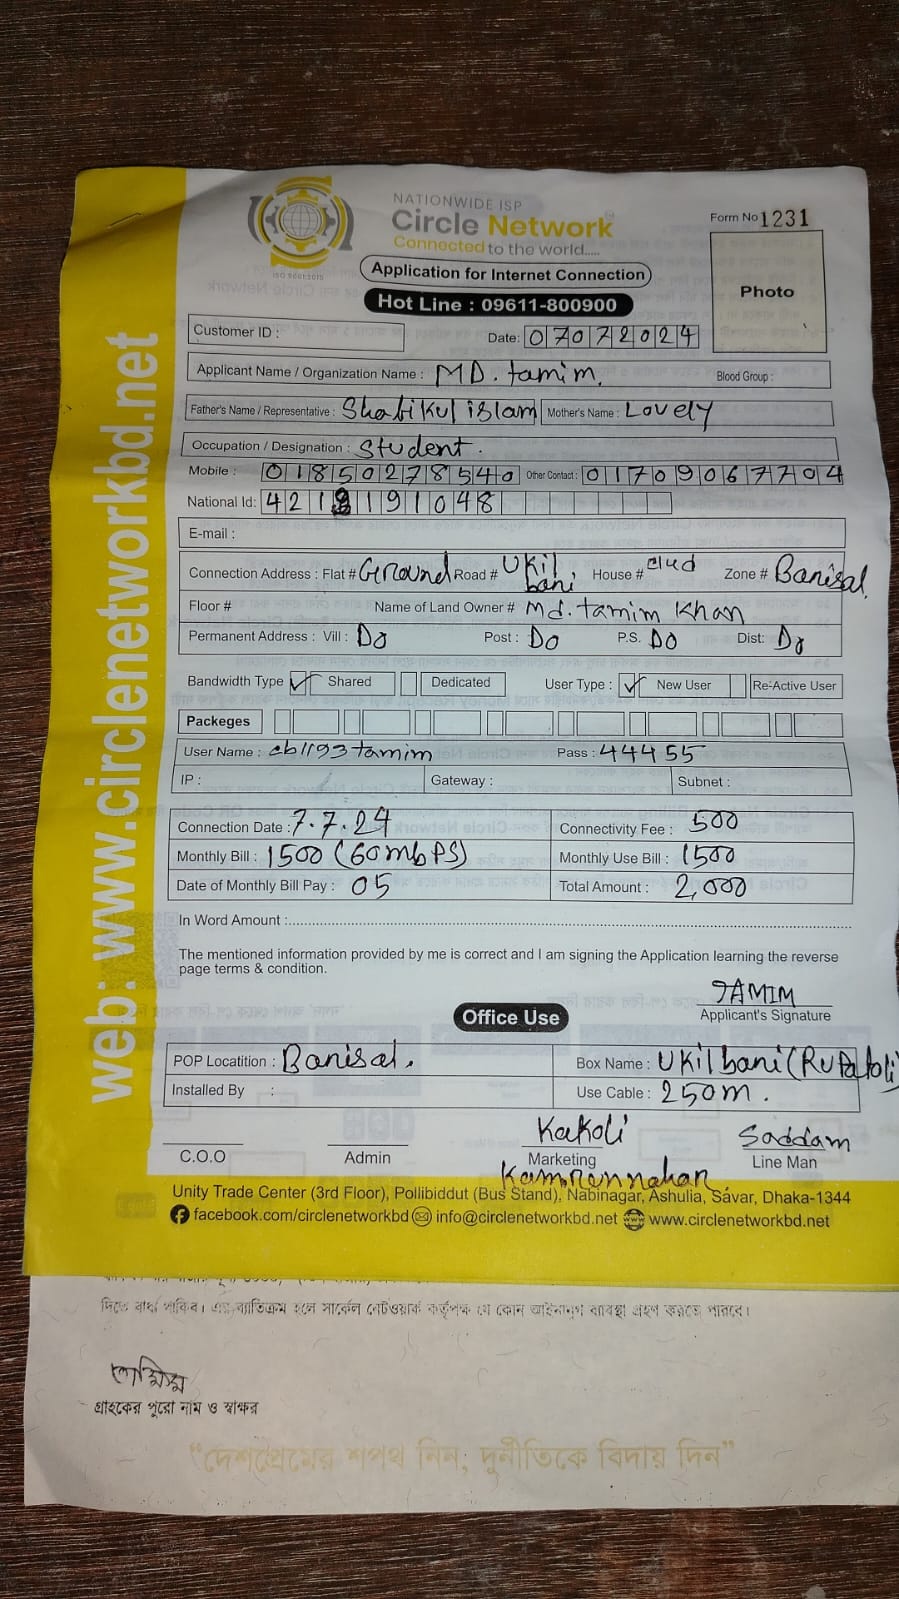 NATIONWIDE ISP
Circle Network
Connected to the world.....
ISO 9001:2015
Form No 1231
Application for Internet Connection
Photo
Hot Line : 09611-800900
Customer ID :
Date: 07072024
Applicant Name / Organization Name : MD. tamim. Blood Group :
Father's Name / Representative : Shabikul islam Mother's Name : Lovely
Occupation / Designation : Student.
Mobile : 01850278540 Other Contact : 01709067704
National Id: 421 191048
E-mail :
Connection Address : Flat # Ground Road # Ukil bani House # Zone # Banisal
Floor # Name of Land Owner # Md. tamim Khan
Permanent Address : Vill : Do Post : Do P.S. Do Dist: Do
Bandwidth Type ✓ Shared Dedicated User Type : ✓ New User Re-Active User
Packeges
User Name : cb1193tamim Pass : 44455
IP : Gateway : Subnet :
Connection Date : 7.7.24 Connectivity Fee : 500
Monthly Bill : 1500 (60mbPS) Monthly Use Bill : 1500
Date of Monthly Bill Pay : 05 Total Amount : 2,000
In Word Amount :
The mentioned information provided by me is correct and I am signing the Application learning the reverse
page terms & condition.
TAMIM
Applicant's Signature
Office Use
POP Locatition : Banisal. Box Name : Ukil bani (Rupatoli)
Installed By : Use Cable : 250m.
Kakoli Saddam
C.O.O Admin Marketing Line Man
Kamrennahan
Unity Trade Center (3rd Floor), Pollibiddut (Bus Stand), Nabinagar, Ashulia, Savar, Dhaka-1344
facebook.com/circlenetworkbd info@circlenetworkbd.net www.circlenetworkbd.net
web: www.circlenetworkbd.net
দিতে বাধ্য থাকিব। এর ব্যতিক্রম হলে সার্কেল নেটওয়ার্ক কর্তৃপক্ষ যে কোন আইনানুগ ব্যবস্থা গ্রহণ করতে পারবে।
তামিম
গ্রাহকের পুরো নাম ও স্বাক্ষর
“দেশপ্রেমের শপথ নিন, দুর্নীতিকে বিদায় দিন”